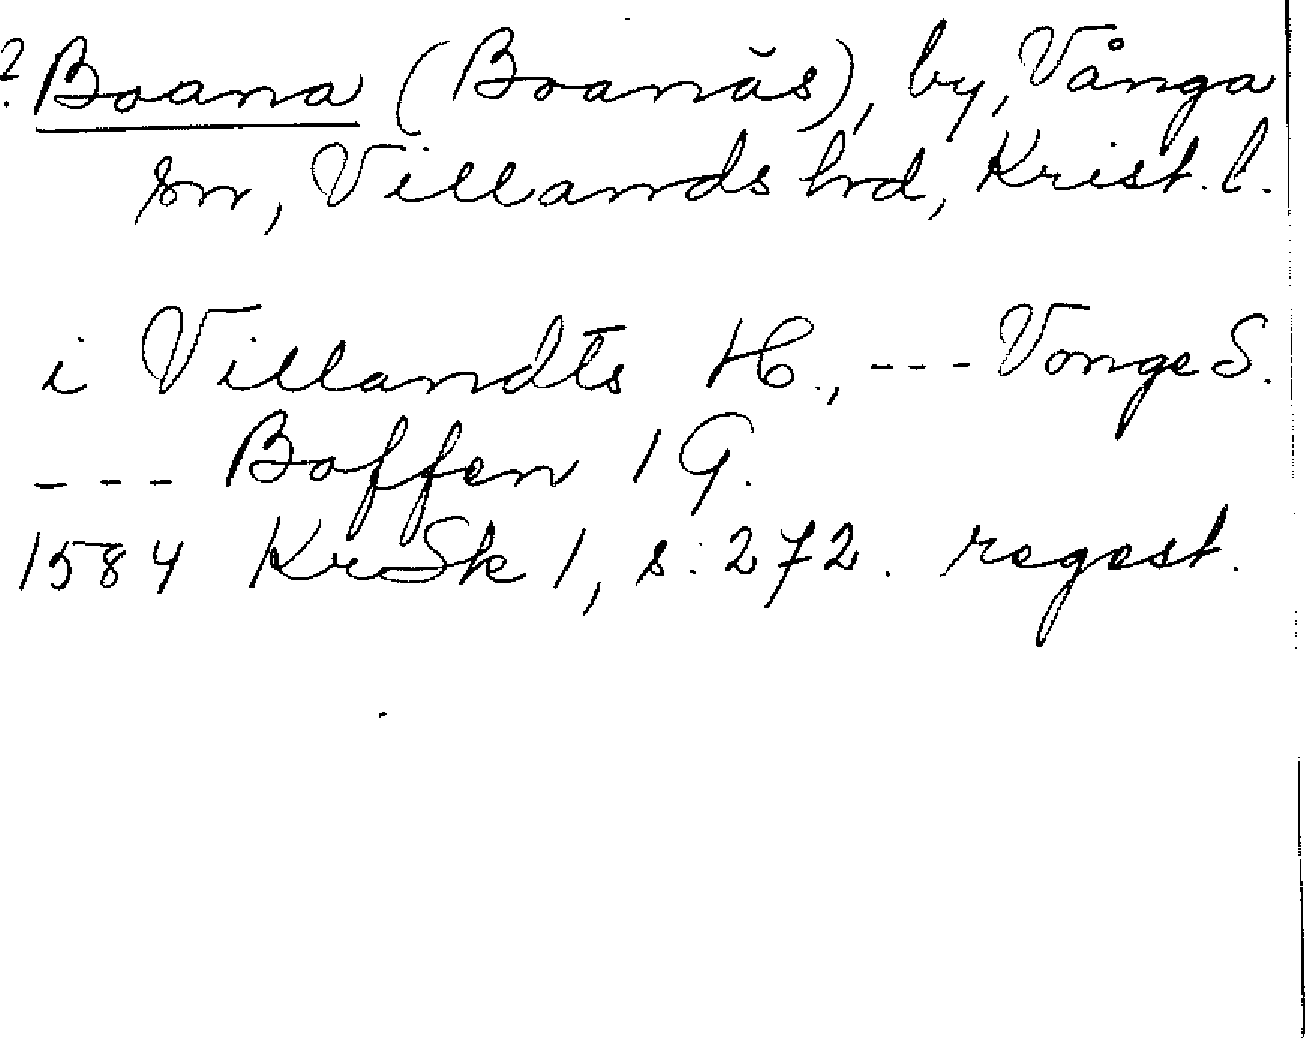 ? Boana (Boanäs), by, Vånga
sn, Villands hd, Krist. l.
i Villandts H., --- Vonge S.
--- Boffen 1 G.
1584 KrSk 1, s. 272. regest.